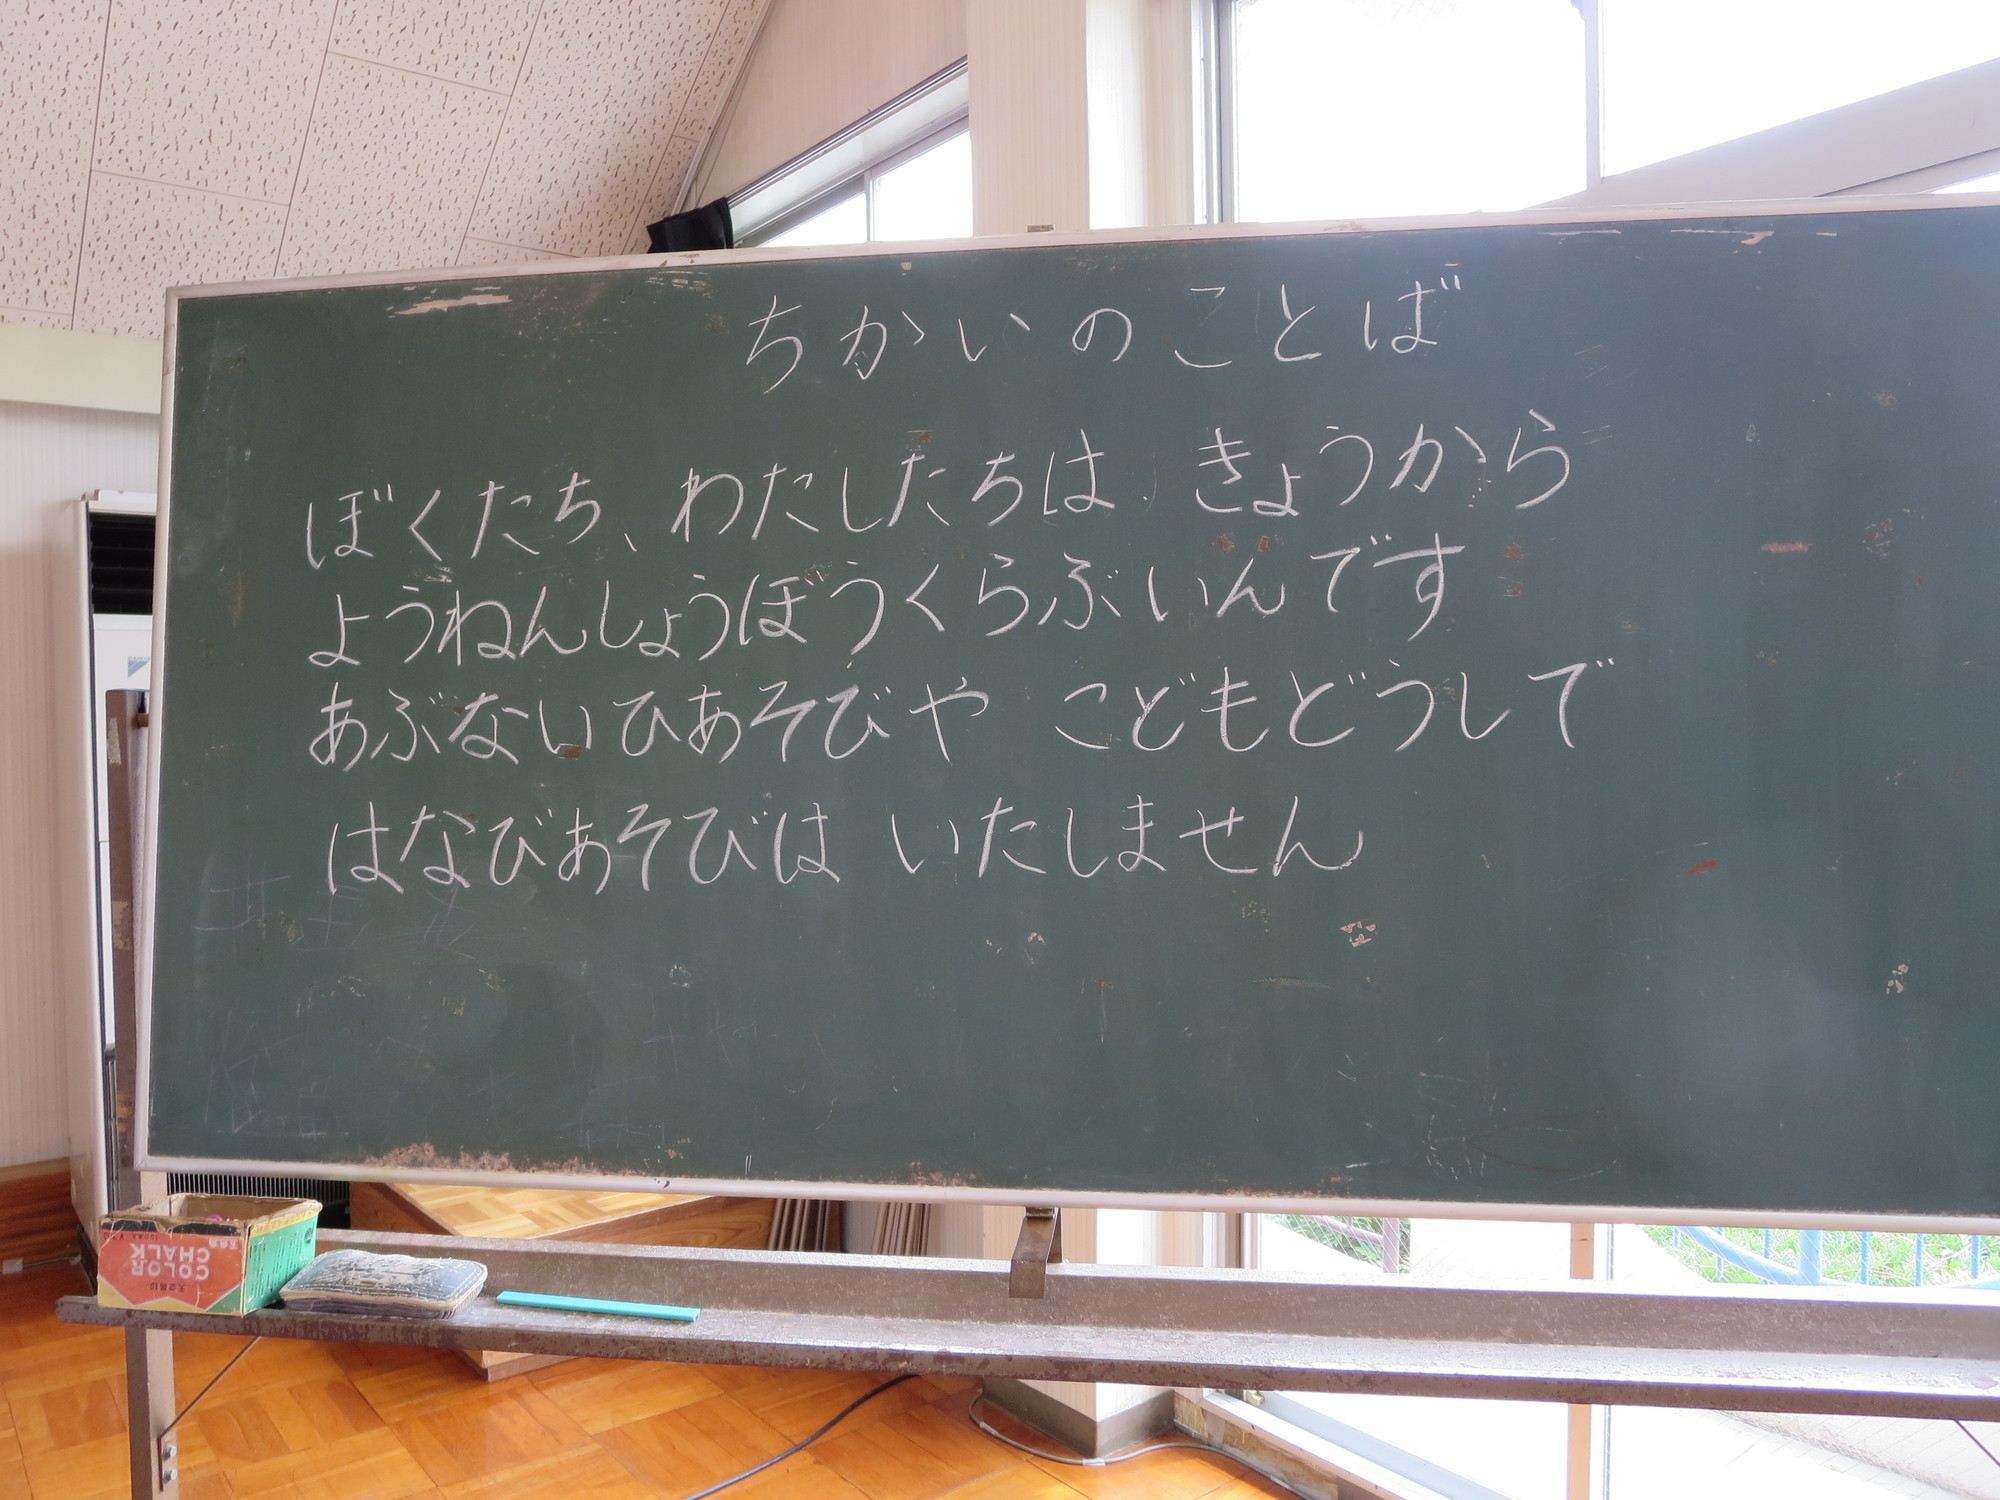 ちかいのことば
ぼくたち、わたしたちは きょうから
ようねんしょうぼうくらぶいんです
あぶないひあそびや こどもどうしで
はなびあそびは いたしません
COLOR
CHALK